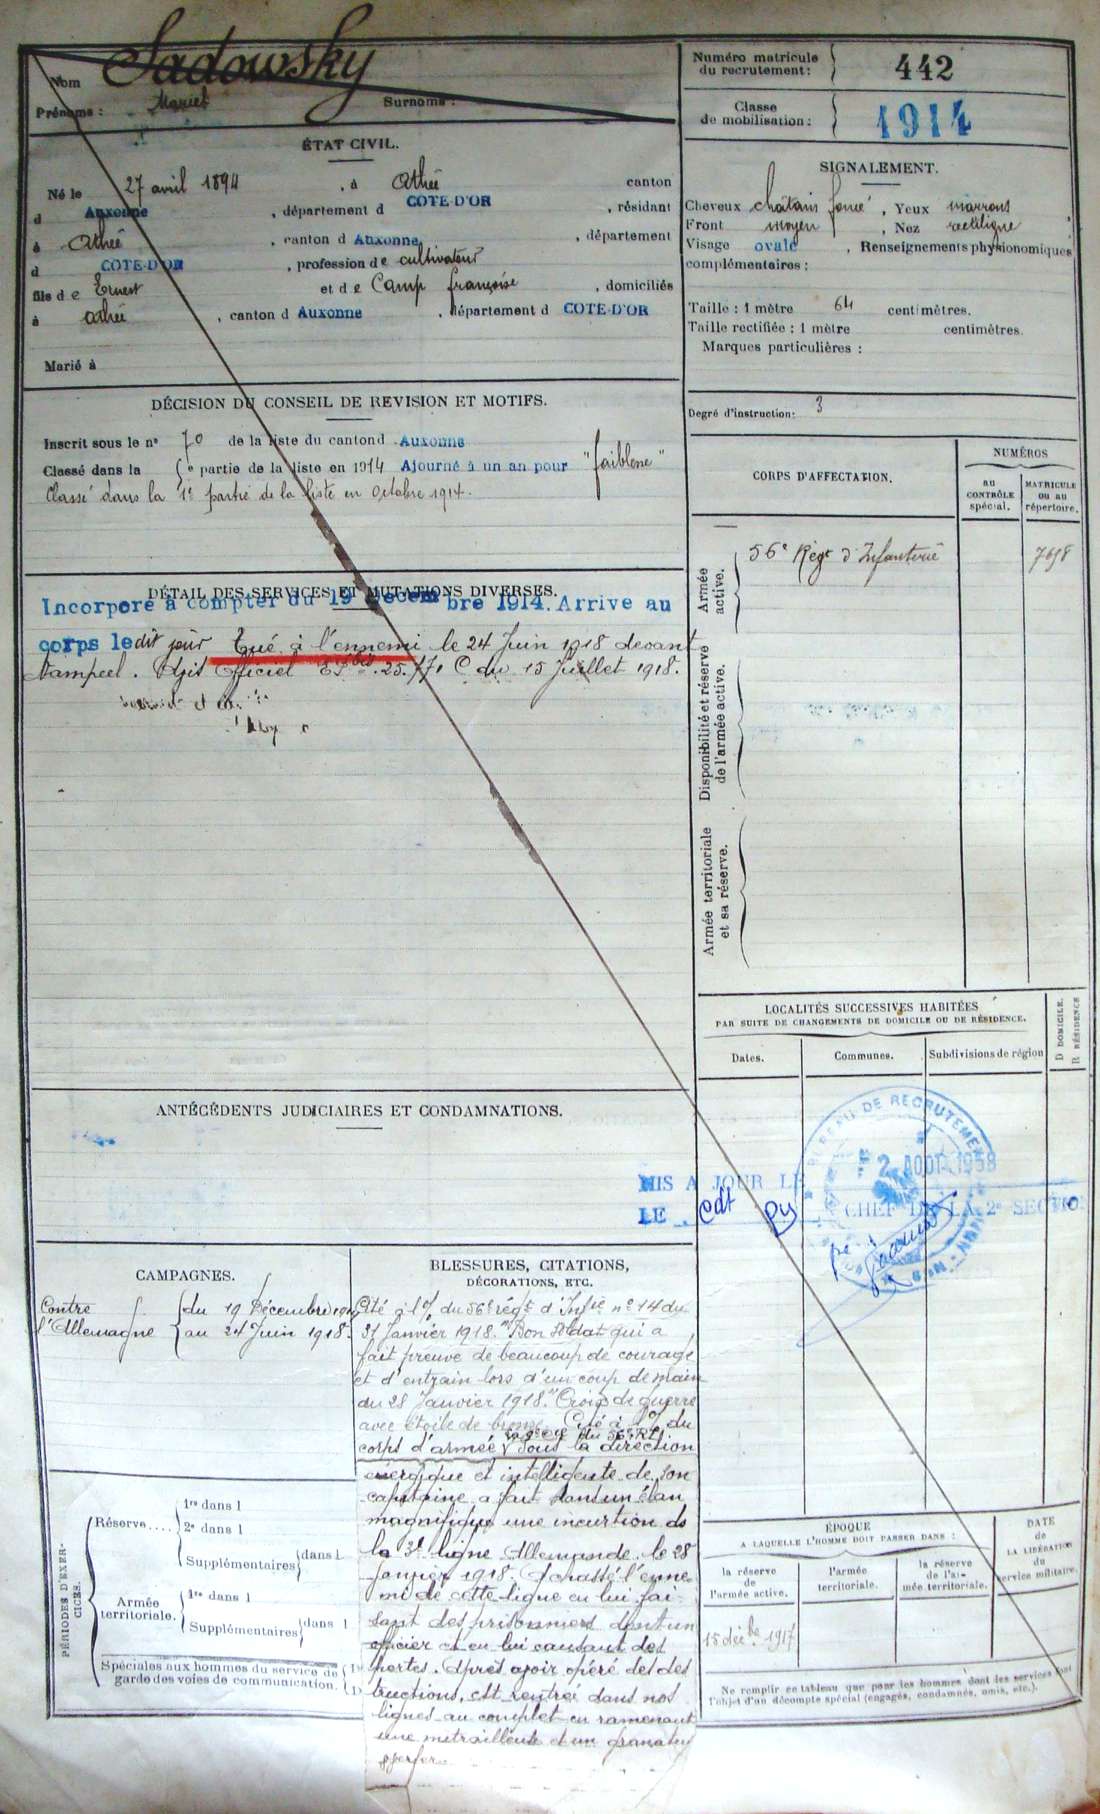 Nom Sadowsky
Prénoms : Surnoms :
Numéro matricule
du recrutement : 442
Classe
de mobilisation : 1914
ÉTAT CIVIL.
Né le 27 avril 1894, à Athée canton
d Auxonne, département d COTE-D'OR, résidant
à Athée, canton d Auxonne, département
d COTE-D'OR, profession de cultivateur
fils de Ernest et de Camp françoise, domiciliés
à Athée, canton d Auxonne, département d COTE-D'OR
Marié à
SIGNALEMENT.
Cheveux châtain foncé, Yeux marrons
Front moyen, Nez rectiligne
Visage ovale, Renseignements physionomiques
complémentaires :
Taille : 1 mètre 64 centimètres.
Taille rectifiée : 1 mètre centimètres.
Marques particulières :
Degré d'instruction : 3
DÉCISION DU CONSEIL DE REVISION ET MOTIFS.
Inscrit sous le n° 70 de la liste du canton d Auxonne
Classé dans la 5e partie de la liste en 1914 Ajourné à un an pour "faiblesse"
Classé dans la 1e partie de la liste en Octobre 1914.
DÉTAIL DES SERVICES ET MUTATIONS DIVERSES.
Incorporé à compter du 19 Décembre 1914. Arrivé au
corps ledit jour Tué à l'ennemi le 24 Juin 1918 devant
Officiel 15 Juillet 1918.
CORPS D'AFFECTATION.
NUMÉROS
AU
CONTRÔLE
spécial.
MATRICULE
OU AU
répertoire.
Armée
active.
56e Régt d'Infanterie
Disponibilité et réserve
de l'armée active.
Armée territoriale
et sa réserve.
LOCALITÉS SUCCESSIVES HABITÉES
PAR SUITE DE CHANGEMENTS DE DOMICILE OU DE RÉSIDENCE.
Dates. Communes. Subdivisions de région
D DOMICILE.
R RÉSIDENCE
ANTÉCÉDENTS JUDICIAIRES ET CONDAMNATIONS.
BUREAU DE RECRUTEMENT
2 AOUT 1958
MIS A JOUR LE
LE Cdt CHEF DE LA 2e SECTION
CAMPAGNES.
Contre
l'Allemagne
du 19 Décembre 1914
au 24 Juin 1918.
BLESSURES, CITATIONS,
DÉCORATIONS, ETC.
Cité à l'O/ du 56e régt d'Infie n° 14 du
31 Janvier 1918. "Bon soldat qui a
fait preuve de beaucoup de courage
et d'entrain lors d'un coup de main
du 28 Janvier 1918." Croix de guerre
avec étoile de bronze. Cité à l'O/ du
corps d'armée
du 56e RI.
Sous la direction
énergique et intelligente de son
capitaine a fait dans un élan
magnifique une incursion ds
la 3e ligne Allemande le 28
Janvier 1918. A chassé l'enne-
mi de cette ligne en lui fai-
sant des prisonniers dont un
officier et en lui causant des
pertes. Après avoir opéré des des
tructions, est rentrée dans nos
lignes au complet en ramenant
une mitrailleuse et un
PÉRIODES D'EXER-
CICES.
Réserve....
1re dans l
2e dans l
Supplémentaires dans l
Armée
territoriale.
1re dans l
Supplémentaires dans l
Spéciales aux hommes du service de
garde des voies de communication.
ÉPOQUE
A LAQUELLE L'HOMME DOIT PASSER DANS :
la réserve
de
l'armée active.
l'armée
territoriale.
la réserve
de l'ar-
mée territoriale.
DATE
de
LA LIBÉRATION
du
service militaire.
15 déc 1917
Ne remplir ce tableau que pour les hommes dont les services font
l'objet d'un décompte spécial (engagés, condamnés, omis, etc.).